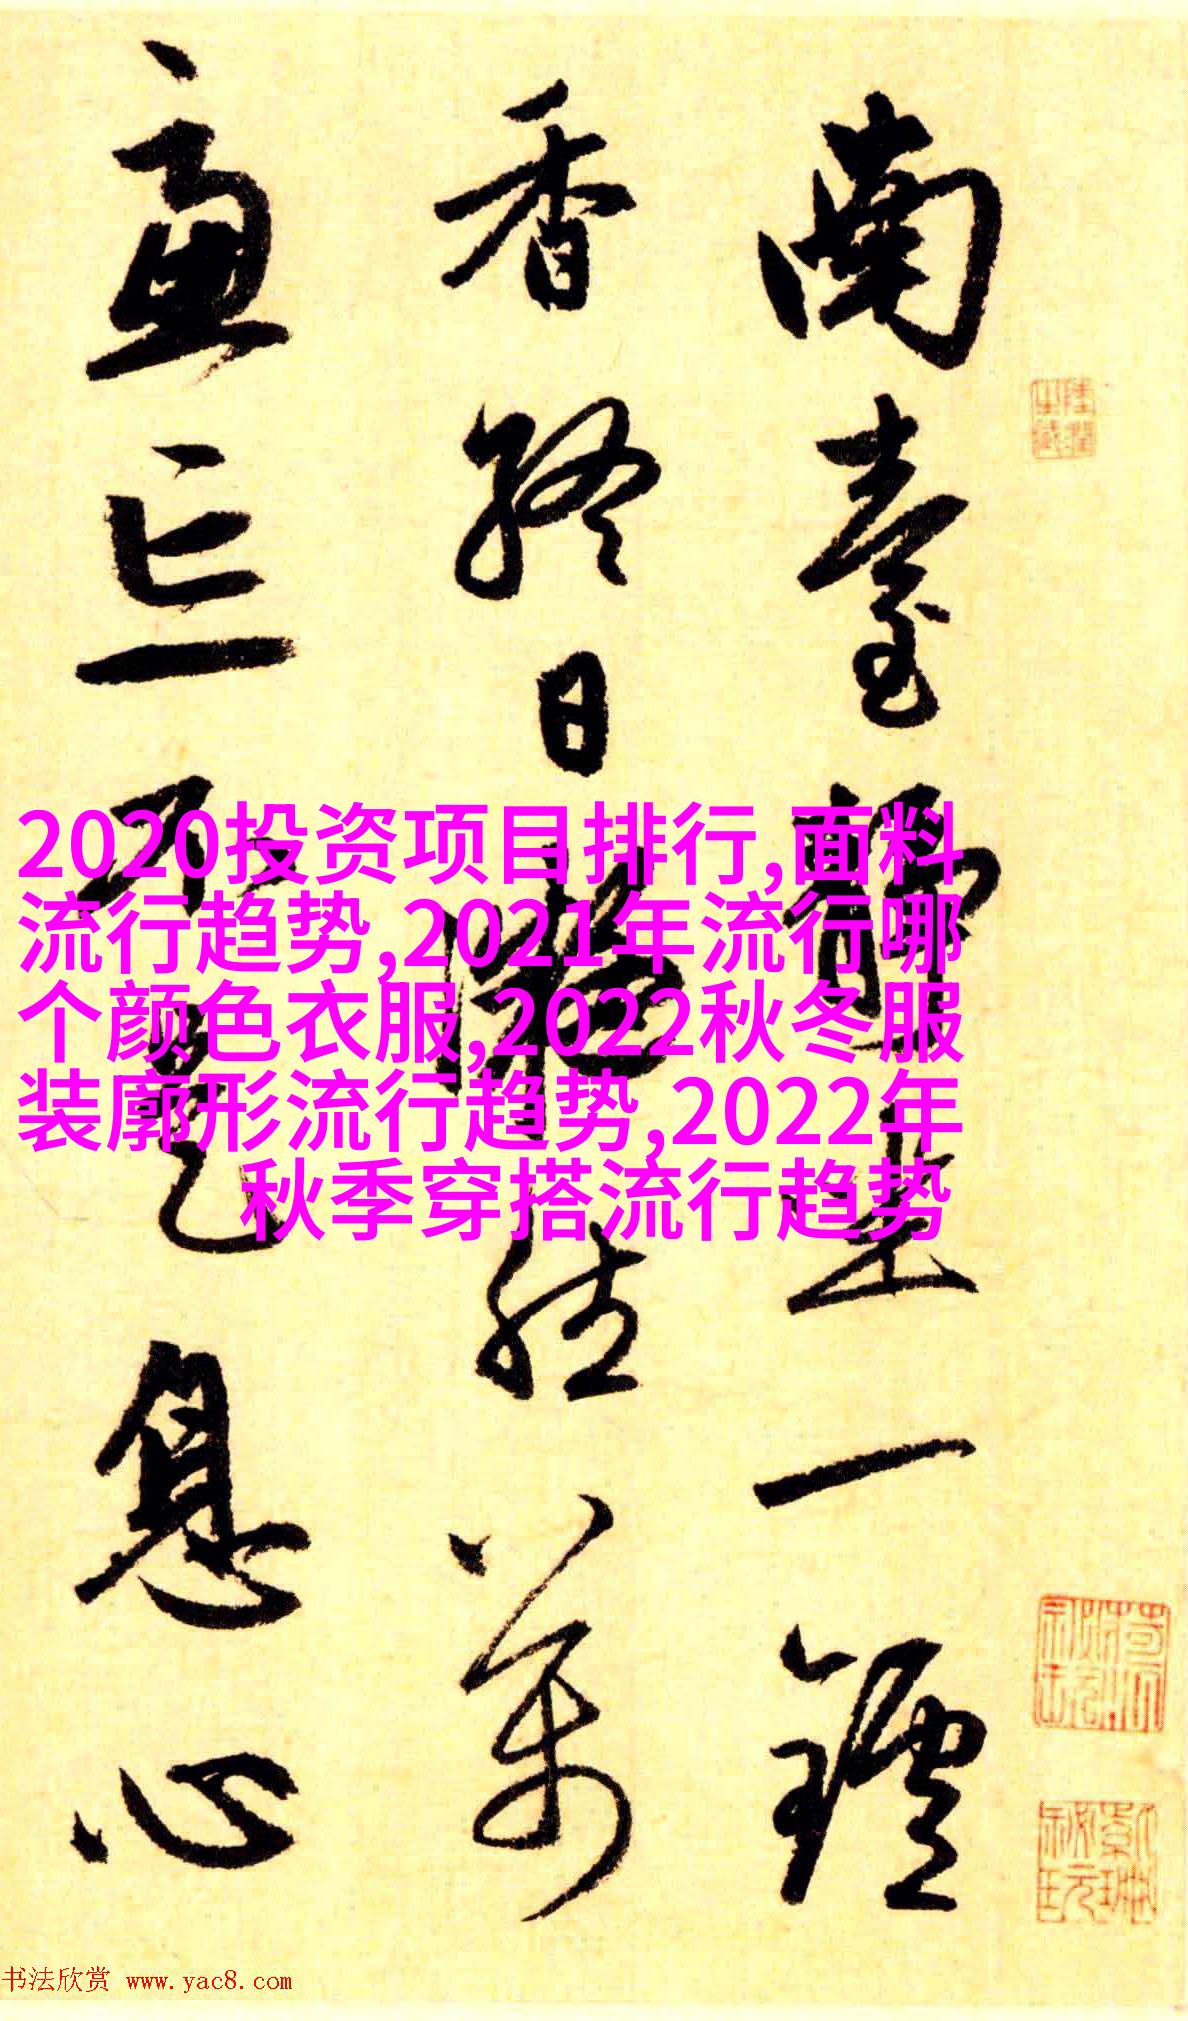 南臺靜坐一鑪
香終日凝然萬
慮忘不是息心
2020投资项目排行,面料
流行趋势,2021年流行哪
个颜色衣服,2022秋冬服
装廓形流行趋势,2022年
秋季穿搭流行趋势
书法欣赏 www.yac8.com